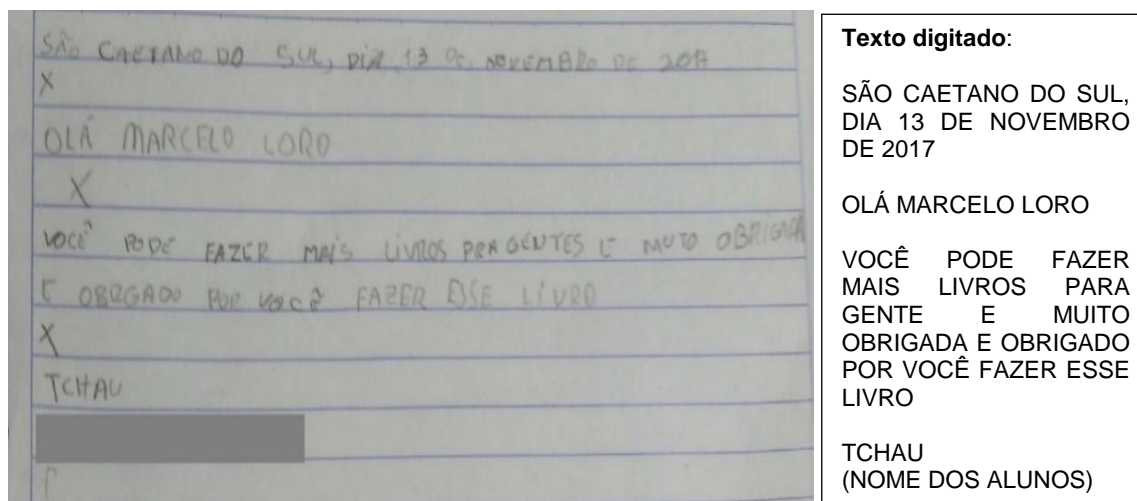 SÃO CAETANO DO SUL, DIA 13 DE NOVEMBRO DE 2017
X
OLÁ MARCELO LORO
X
VOCÊ PODE FAZER MAIS LIVROS PRA GENTES E MUTO OBRIGADA
E OBRGADO POR VOCÊ FAZER ESSE LIVRO
X
TCHAU
Texto digitado:
SÃO CAETANO DO SUL,
DIA 13 DE NOVEMBRO
DE 2017
OLÁ MARCELO LORO
VOCÊ PODE FAZER
MAIS LIVROS PARA
GENTE E MUITO
OBRIGADA E OBRIGADO
POR VOCÊ FAZER ESSE
LIVRO
TCHAU
(NOME DOS ALUNOS)